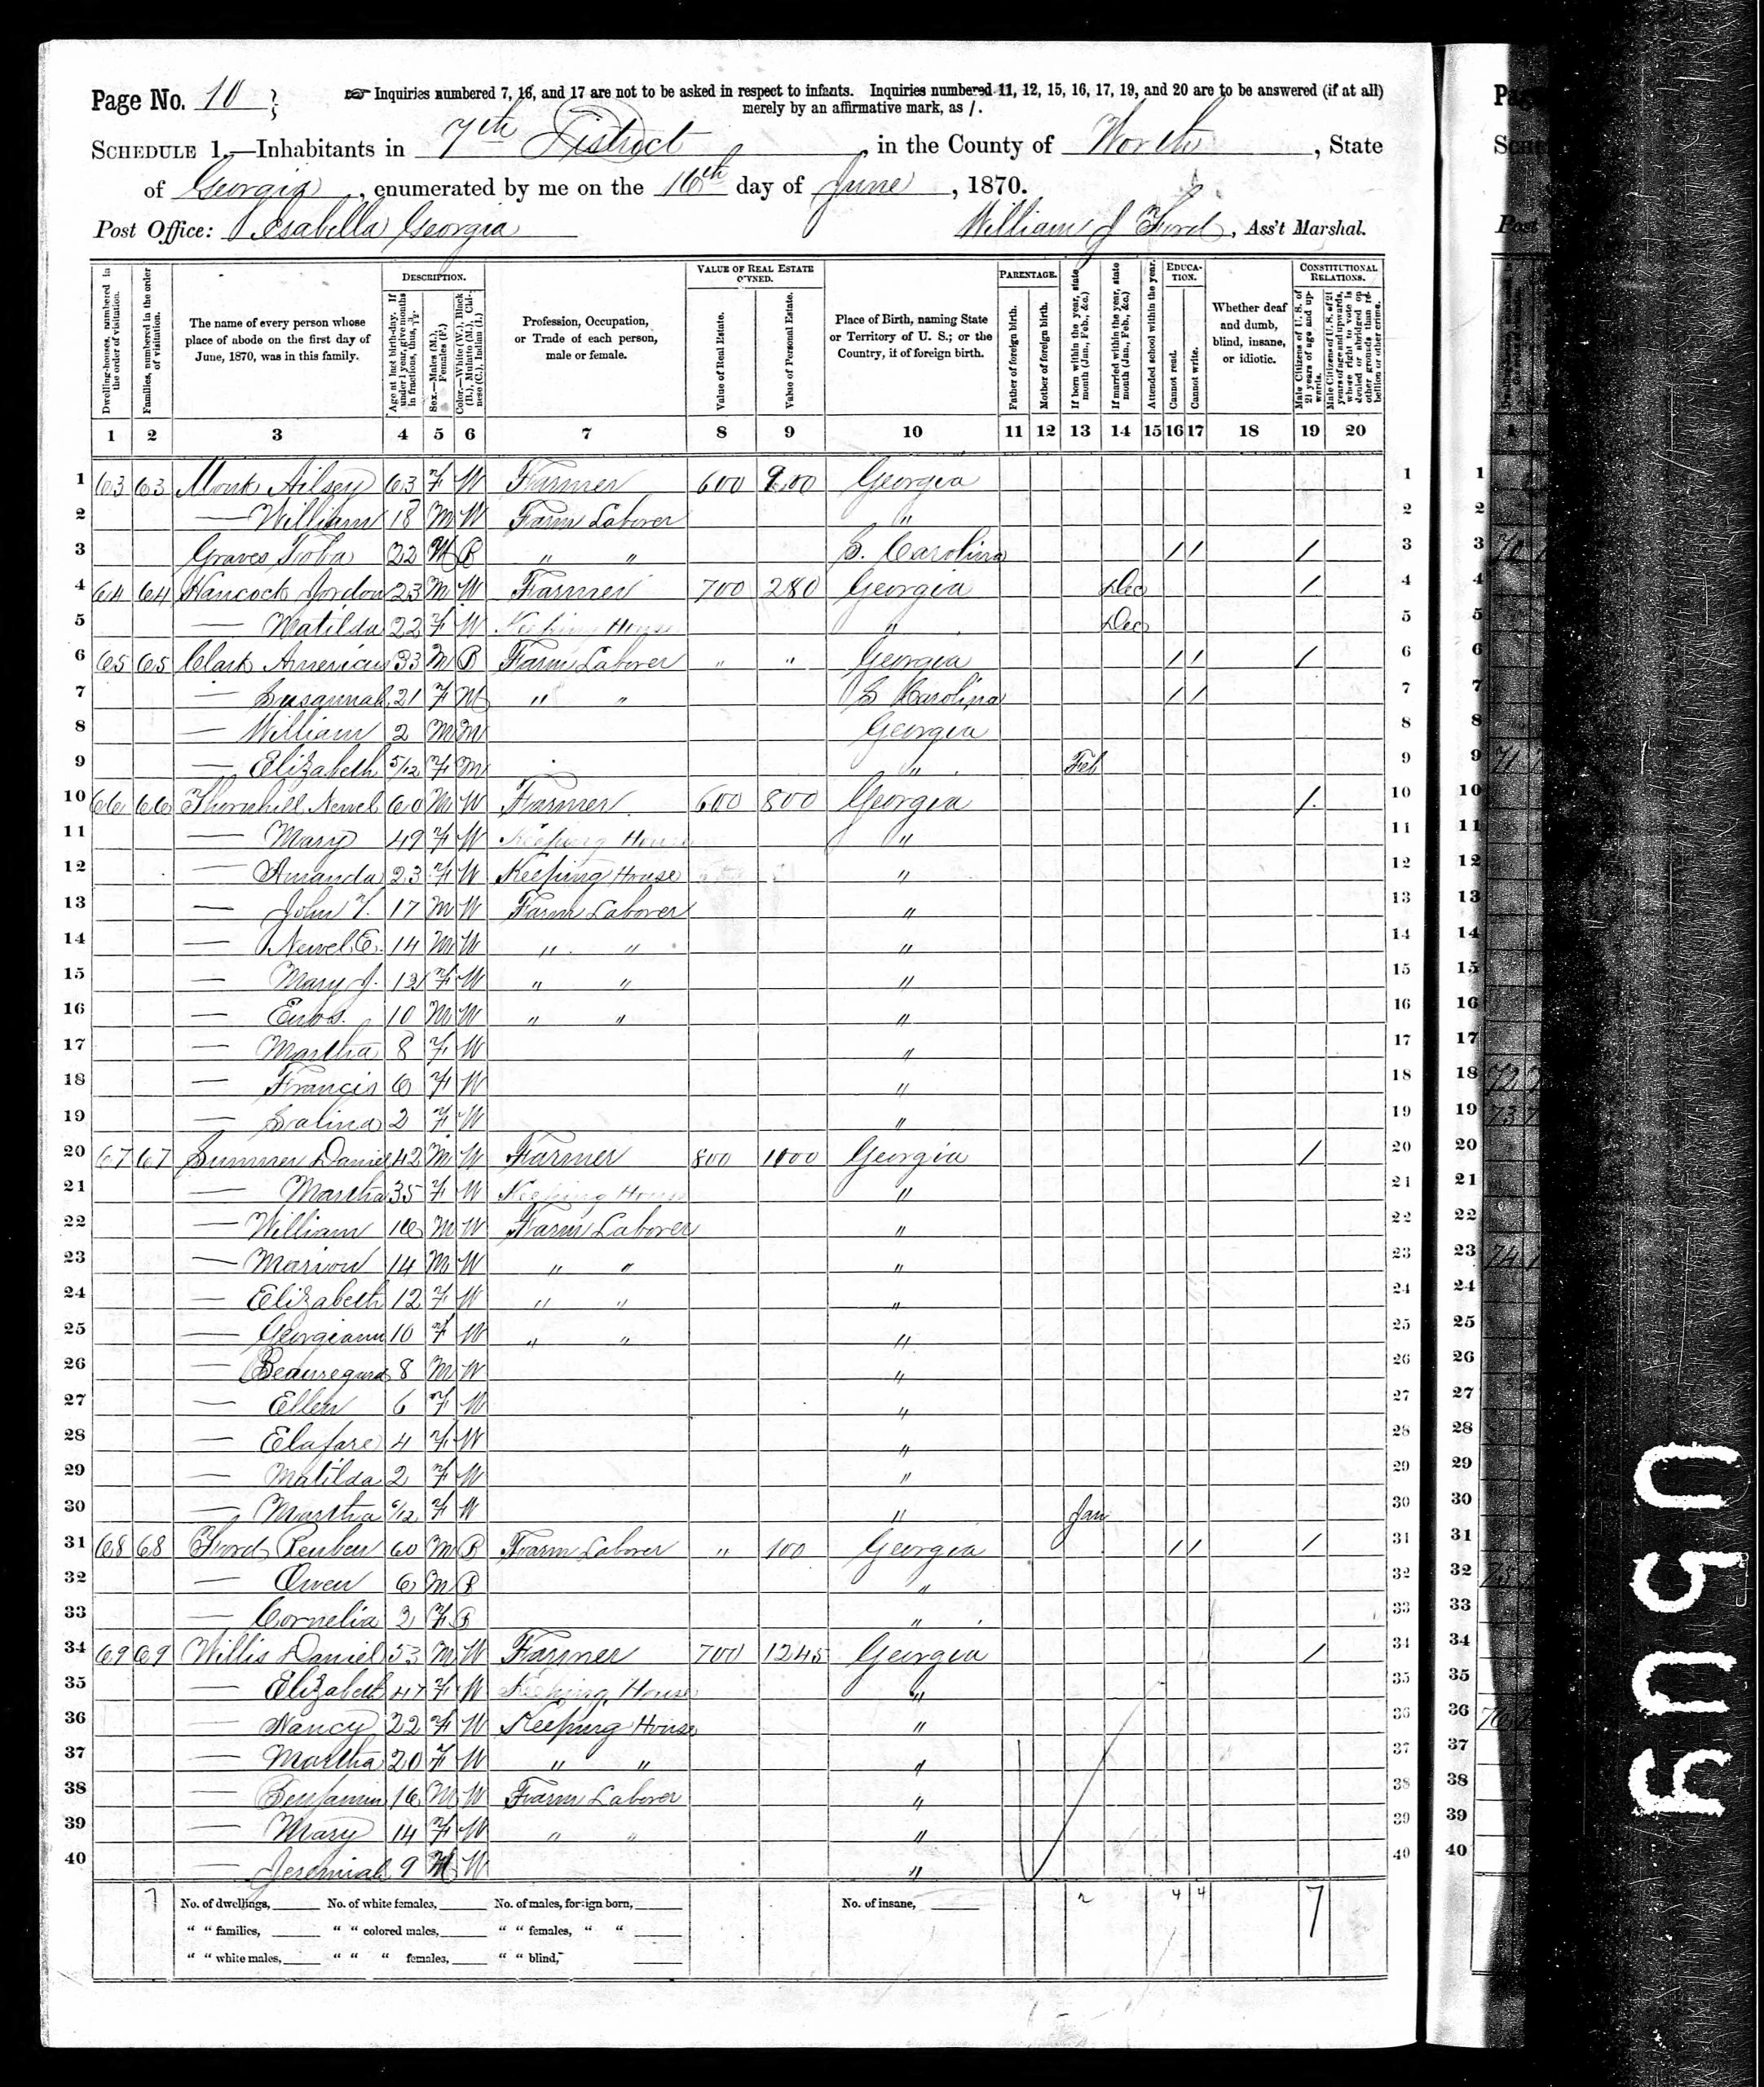 Page No. 10
☞ Inquiries numbered 7, 16, and 17 are not to be asked in respect to infants. Inquiries numbered 11, 12, 15, 16, 17, 19, and 20 are to be answered (if at all)
merely by an affirmative mark, as /.
SCHEDULE 1.—Inhabitants in 7th District, in the County of Worth, State
of Georgia, enumerated by me on the 16th day of June, 1870.
Post Office: Isabella Georgia William J Ford, Ass't Marshal.
Dwelling-houses, numbered in the order of visitation.
Families, numbered in the order of visitation.
The name of every person whose place of abode on the first day of June, 1870, was in this family.
DESCRIPTION.
Age at last birth-day. If under 1 year, give months in fractions, thus, 3/12.
Sex.—Males (M.), Females (F.)
Color.—White (W.), Black (B.), Mulatto (M.), Chinese (C.), Indian (I.)
Profession, Occupation, or Trade of each person, male or female.
VALUE OF REAL ESTATE OWNED.
Value of Real Estate.
Value of Personal Estate.
Place of Birth, naming State or Territory of U. S.; or the Country, if of foreign birth.
PARENTAGE.
Father of foreign birth.
Mother of foreign birth.
If born within the year, state month (Jan., Feb., &c.)
If married within the year, state month (Jan., Feb., &c.)
Attended school within the year.
EDUCATION.
Cannot read.
Cannot write.
Whether deaf and dumb, blind, insane, or idiotic.
CONSTITUTIONAL RELATIONS.
Male Citizens of U. S. of 21 years of age and upwards.
Male Citizens of U. S. of 21 years of age and upwards, whose right to vote is denied or abridged on other grounds than rebellion or other crime.
1 2 3 4 5 6 7 8 9 10 11 12 13 14 15 16 17 18 19 20
1 63 63 Monk Ailsey 63 F W Farmer 600 900 Georgia 1
2 — William 18 M W Farm Laborer " 2
3 Graves 22 M B " " S. Carolina / / / 3
4 64 64 Hancock Jordon 23 M W Farmer 700 280 Georgia Dec / 4
5 — Matilda 22 F W Keeping House " Dec 5
6 65 65 Clark Americus 33 M B Farm Laborer " " Georgia / / / 6
7 — Susannah 21 F M " " S Carolina / / 7
8 — William 2 M M Georgia 8
9 — Elizabeth 5/12 F M " Feb 9
10 66 66 Thornhill Newel 60 M W Farmer 600 800 Georgia / 10
11 — Mary 49 F W Keeping House " 11
12 — Amanda 23 F W Keeping House " 12
13 — John T. 17 M W Farm Laborer " 13
14 — Newel E. 14 M W " " " 14
15 — Mary J. 13 F W " " " 15
16 — Enos. 10 M W " " " 16
17 — Martha 8 F W " 17
18 — Francis 6 F W " 18
19 — Salina 2 F W " 19
20 67 67 Sumner Daniel 42 M W Farmer 800 1000 Georgia / 20
21 — Martha 35 F W Keeping House " 21
22 — William 16 M W Farm Laborer " 22
23 — Marion 14 M W " " " 23
24 — Elizabeth 12 F W " " " 24
25 — Georgiann 10 F W " " " 25
26 — Beauregard 8 M W " 26
27 — Ellen 6 F W " 27
28 — Elafare 4 F W " 28
29 — Matilda 2 F W " 29
30 — Martha 6/12 F W " Jan 30
31 68 68 Ford Reuben 60 M B Farm Laborer " 100 Georgia / / / 31
32 — Owen 6 M B " 32
33 — Cornelia 2 F B " 33
34 69 69 Willis Daniel 53 M W Farmer 700 1245 Georgia / 34
35 — Elizabeth 47 F W Keeping House " 35
36 — Nancy 22 F W Keeping House " 36
37 — Martha 20 F W " " " 37
38 — Benjamin 16 M W Farm Laborer " 38
39 — Mary 14 F W " " " 39
40 — Jeremiah 9 M W " 40
7 No. of dwellings, No. of white females, No. of males, foreign born, No. of insane, 2 4 4 7
" " families, " " colored males, " " females, " "
" " white males, " " " females, " " blind,
0509